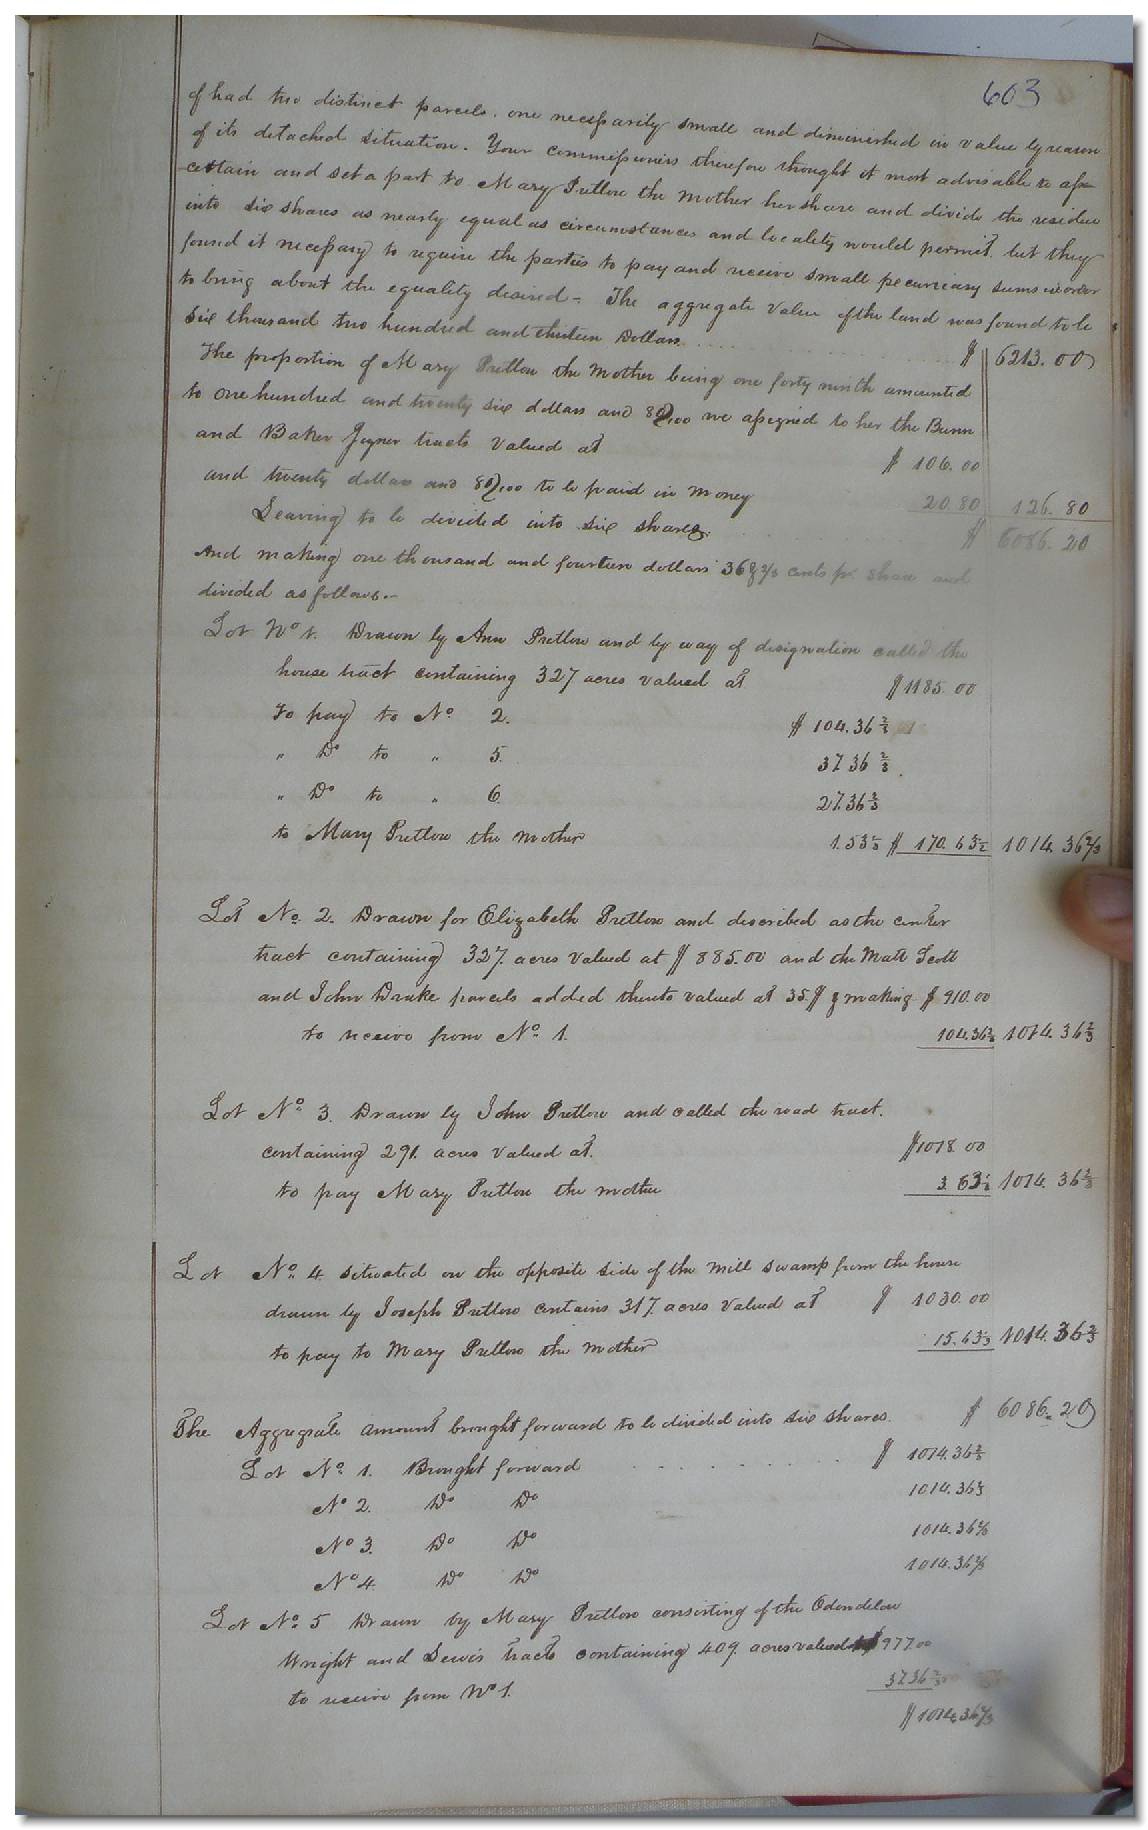 603
of had two distinct parcels, one necessarily small and diminished in value by reason
of its detached situation. Your commissioners therefore thought it most advisable to asse
certain and set a part to Mary Pretlow the mother her share and divide the residue
into six shares as nearly equal as circumstances and locality would permit, but they
found it necessary to require the parties to pay and receive small pecuniary sums in order
to bring about the equality desired - The aggregate value of the land was found to be
six thousand two hundred and thirteen Dollars $ 6213.00
The proportion of Mary Pretlow the mother being one forty ninth amounted
to one hundred and twenty six dollars and 80/100 we assigned to her the Bunn
and Baker Joyner tracts valued at $ 106.00
and twenty dollars and 80/100 to be paid in money 20.80 126.80
Leaving to be divided into six shares. $ 6086.20
And making one thousand and fourteen dollars 36 2/3 cents pr share and
divided as follows.-
Lot No 1. Drawn by Ann Pretlow and by way of designation called the
house tract containing 327 acres valued at $1185.00
To pay to No. 2. $ 104.36 2/3
" Do to " 5. 37.36 2/3
" Do to " 6. 27.36 2/3
to Mary Pretlow the mother 1.53 1/3 $ 170.63 1/3 1014.36 2/3
Lot No. 2. Drawn for Elizabeth Pretlow and described as the center
tract containing 327. acres valued at $ 885.00 and the Matt Scott
and John Drake parcels added thereto valued at 25.$ & making $ 910.00
to receive from No. 1. 104.36 2/3 1014.36 2/3
Lot No. 3. Drawn by John Pretlow and called the road tract.
containing 291. acres valued at. $1018.00
to pay Mary Pretlow the mother 3.63 1/3 1014.36 2/3
Lot No. 4 situated on the opposite side of the mill swamp from the house
drawn by Joseph Pretlow contains 317. acres valued at $ 1030.00
to pay to Mary Pretlow the mother 15.63 1/3 1014.36 2/3
The Aggregate amount brought forward to be divided into six shares. $ 6086.20
Lot No. 1. Brought forward $ 1014.36 2/3
No 2. Do Do 1014.36 2/3
No 3. Do Do 1014.36 2/3
No 4. Do Do 1014.36 2/3
Lot No. 5 Drawn by Mary Pretlow consisting of the
Wright and Lewis tracts containing 409. acres valued at $977.00
to receive from No 1. 37.36 2/3
$ 1014.36 2/3